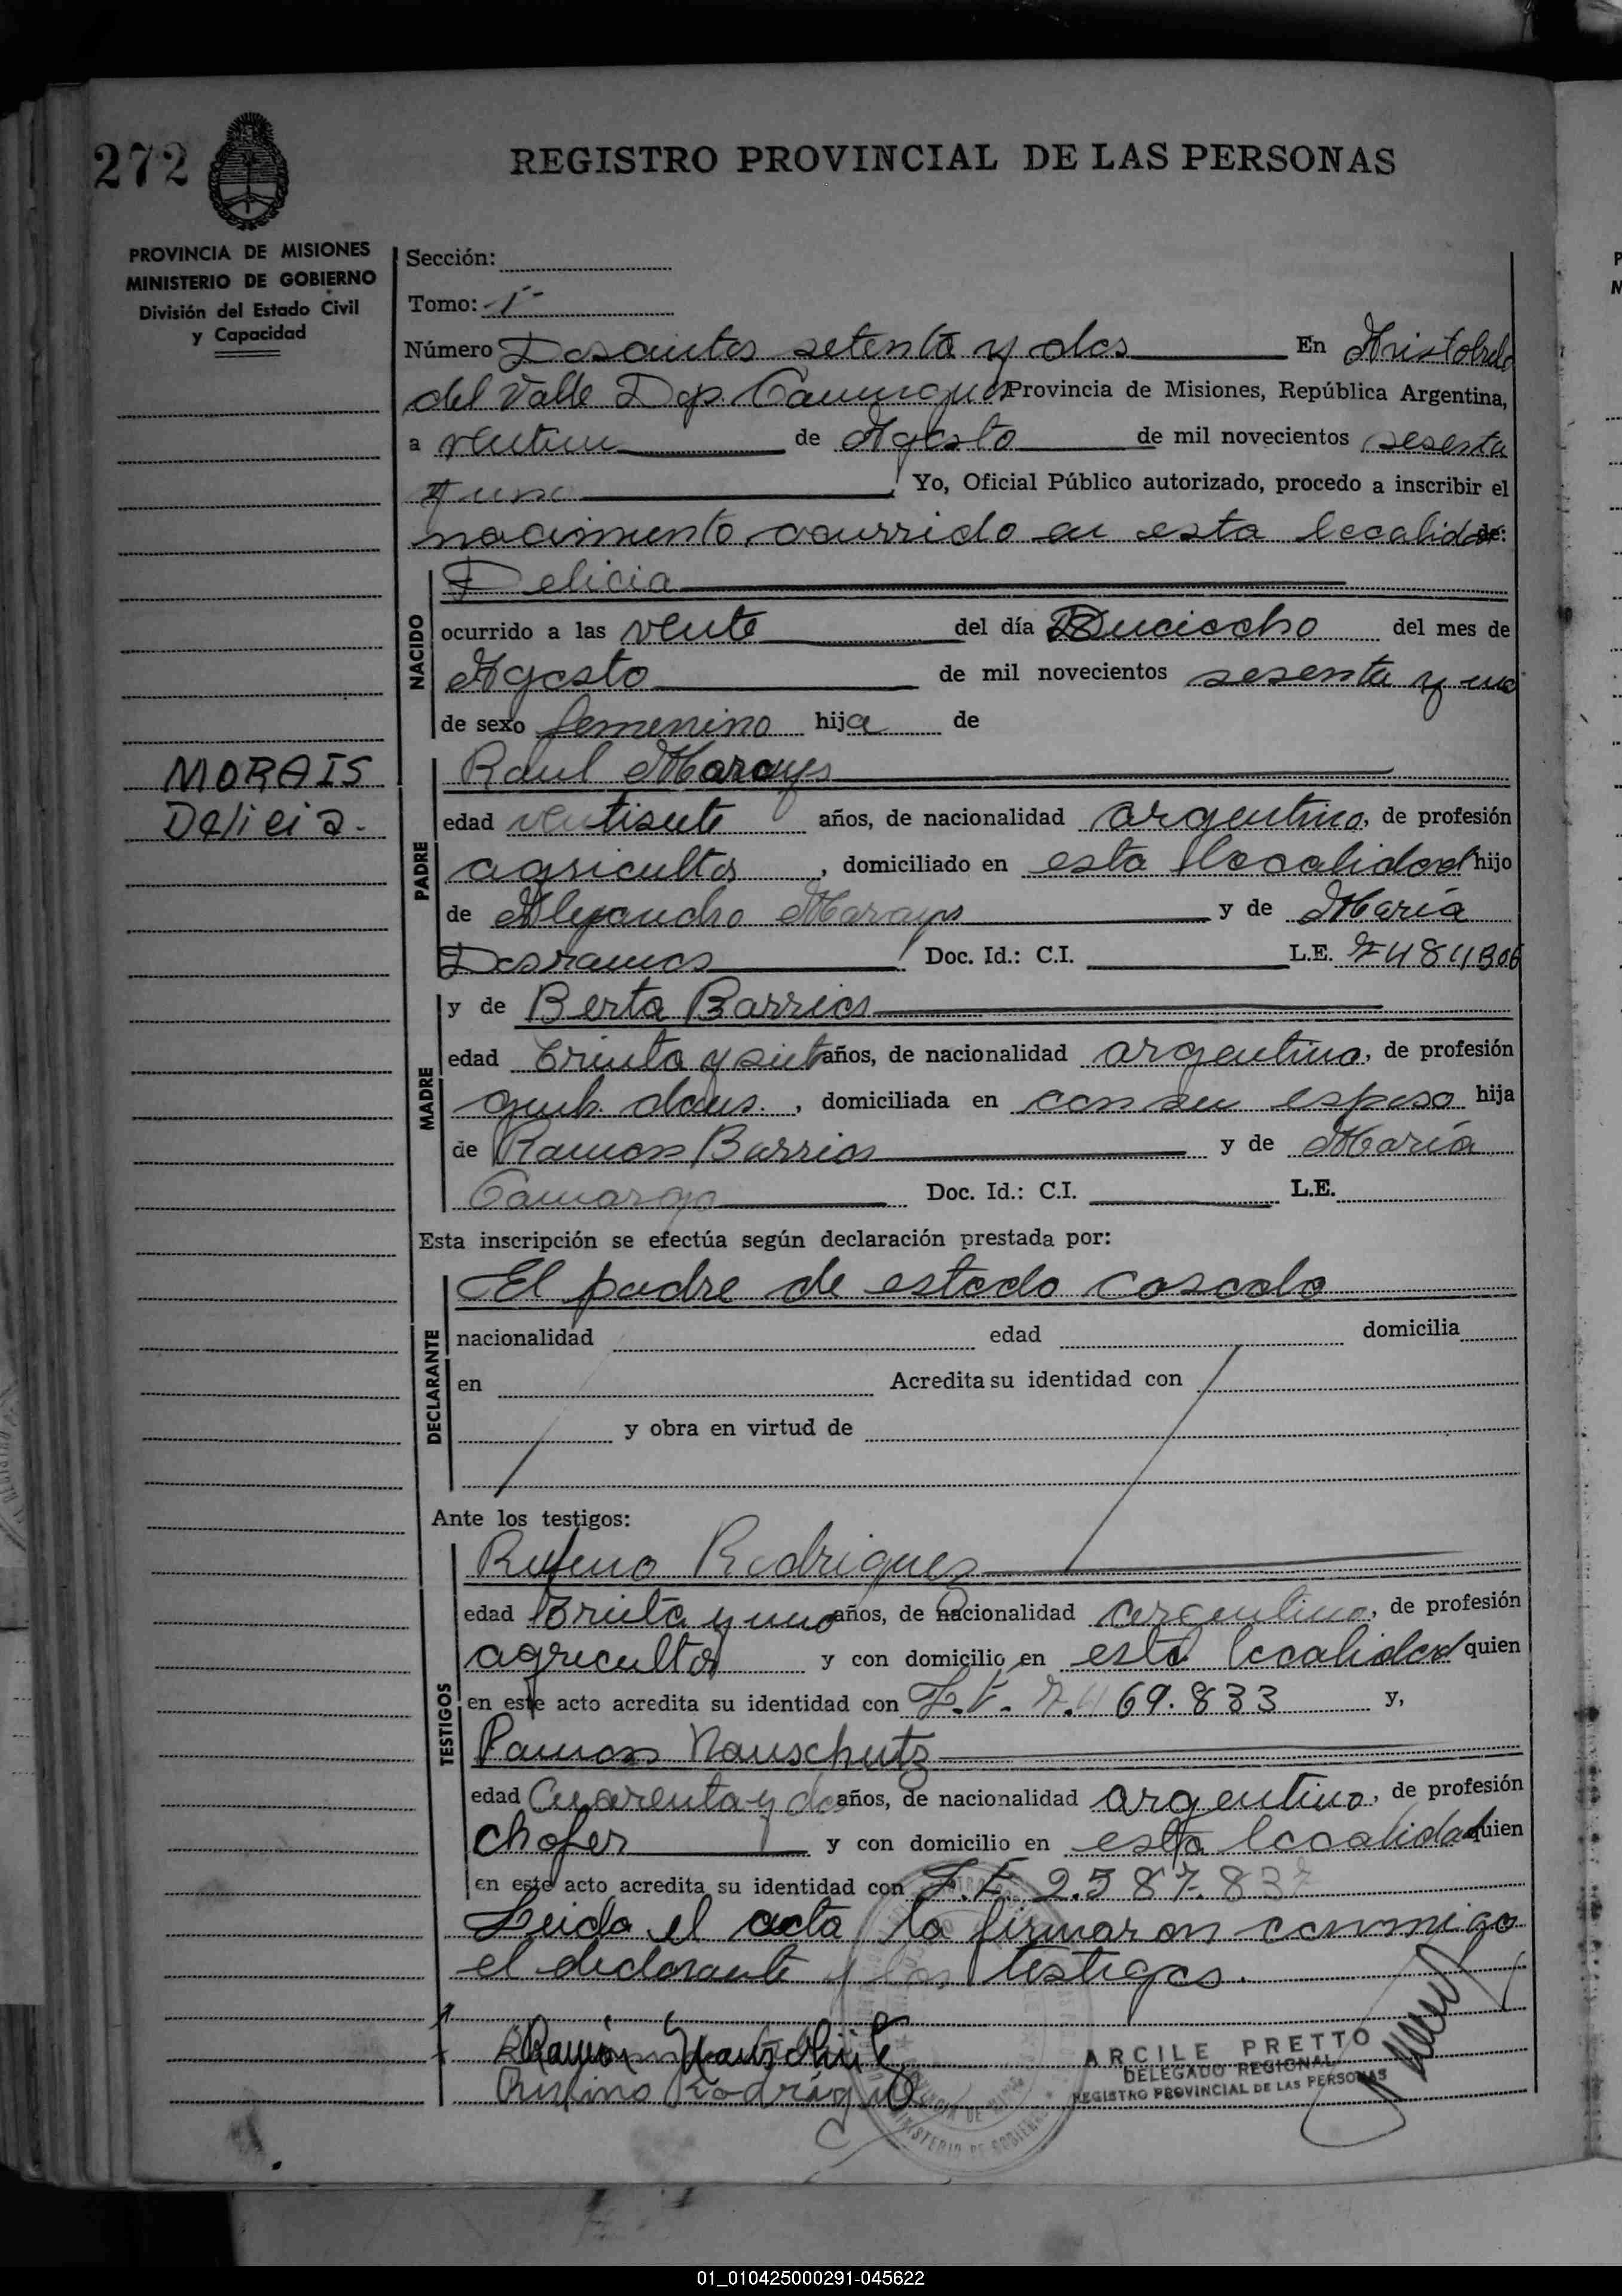 272
REGISTRO PROVINCIAL DE LAS PERSONAS
PROVINCIA DE MISIONES
MINISTERIO DE GOBIERNO
División del Estado Civil
y Capacidad
Sección:
Tomo: - I -
Número Doscientos setenta y dos En Aristobulo
del Valle Dep. Cainguás Provincia de Misiones, República Argentina,
a veintiun de Agosto de mil novecientos sesenta
y uno , Yo, Oficial Público autorizado, procedo a inscribir el
nacimiento ocurrido en esta localidad de:
NACIDO
Delicia
ocurrido a las veinte del día Dieciocho del mes de
Agosto de mil novecientos sesenta y uno
de sexo femenino hija de
MORAIS
Delicia.
PADRE
Raul Morays
edad veintisiete años, de nacionalidad argentino, de profesión
agricultor , domiciliado en esta localidad hijo
de Alejandro Morays y de María
Dosramos Doc. Id.: C.I. L.E. 7484306
MADRE
y de Berta Barrios
edad Treinta y siete años, de nacionalidad argentina, de profesión
queh. doms. , domiciliada en con su esposo hija
de Ramon Barrios y de María
Camargo Doc. Id.: C.I. L.E.
Esta inscripción se efectúa según declaración prestada por:
DECLARANTE
El padre de estado casado
nacionalidad edad domicilia
en Acredita su identidad con
y obra en virtud de
Ante los testigos:
TESTIGOS
Rufino Rodriguez
edad Treinta y uno años, de nacionalidad argentino, de profesión
agricultor y con domicilio en esta localidad quien
en este acto acredita su identidad con L.E. 7.469.833 y,
Ramon Nauschutz
edad Cuarenta y dos años, de nacionalidad argentino, de profesión
chofer y con domicilio en esta localidad quien
en este acto acredita su identidad con L.E. 2.587.837
Leida el acta la firmaron conmigo
el declarante y los testigos.
Ramón
Rufino Rodríguez
ARCILE PRETTO
DELEGADO REGIONAL
REGISTRO PROVINCIAL DE LAS PERSONAS
MINISTERIO DE GOBIERNO
01_010425000291-045622